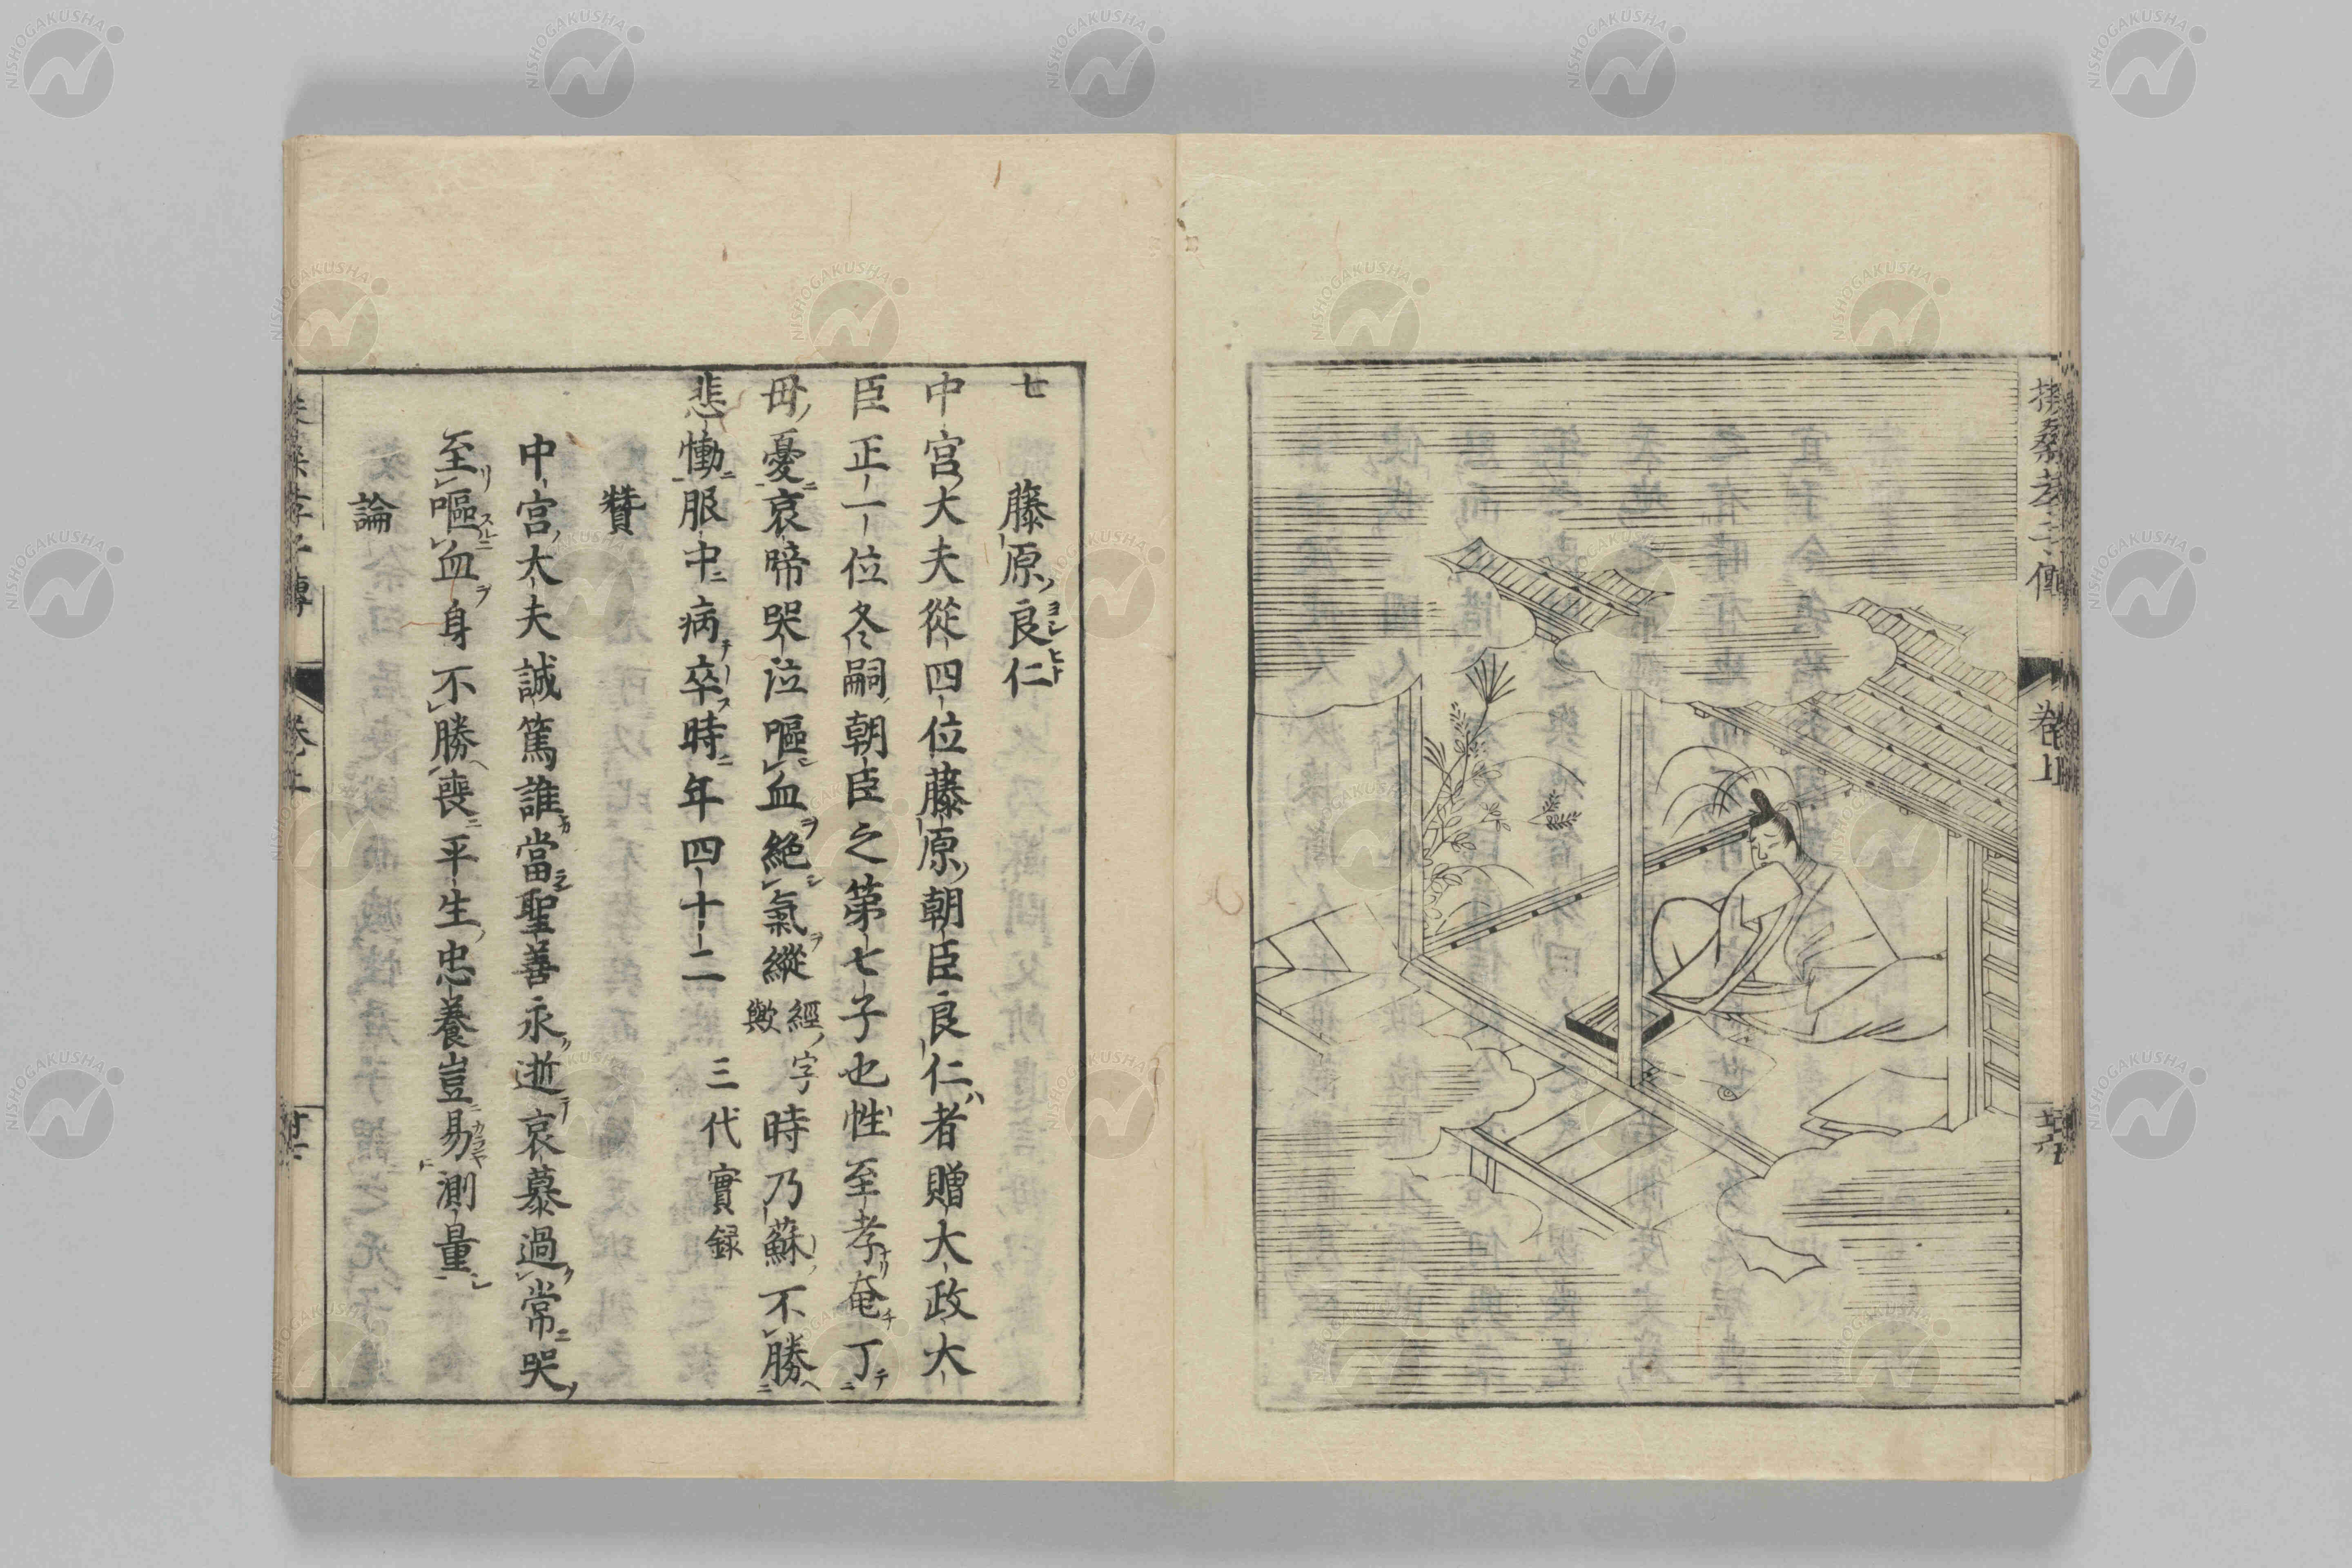 扶桑孝子傳
卷上
七
藤原良仁
中宮大夫從四位藤原朝臣良仁者贈大政大
臣正一位冬嗣朝臣之第七子也性至孝奄丁
母憂哀啼哭泣嘔血絶氣縱經字歟時乃蘇不勝
悲慟服中病卒時年四十二 三代實録
贊
中宮大夫誠篤誰當聖善永逝哀慕過常哭
至嘔血身不勝喪平生忠養豈易測量
論
NISHOGAKUSHA